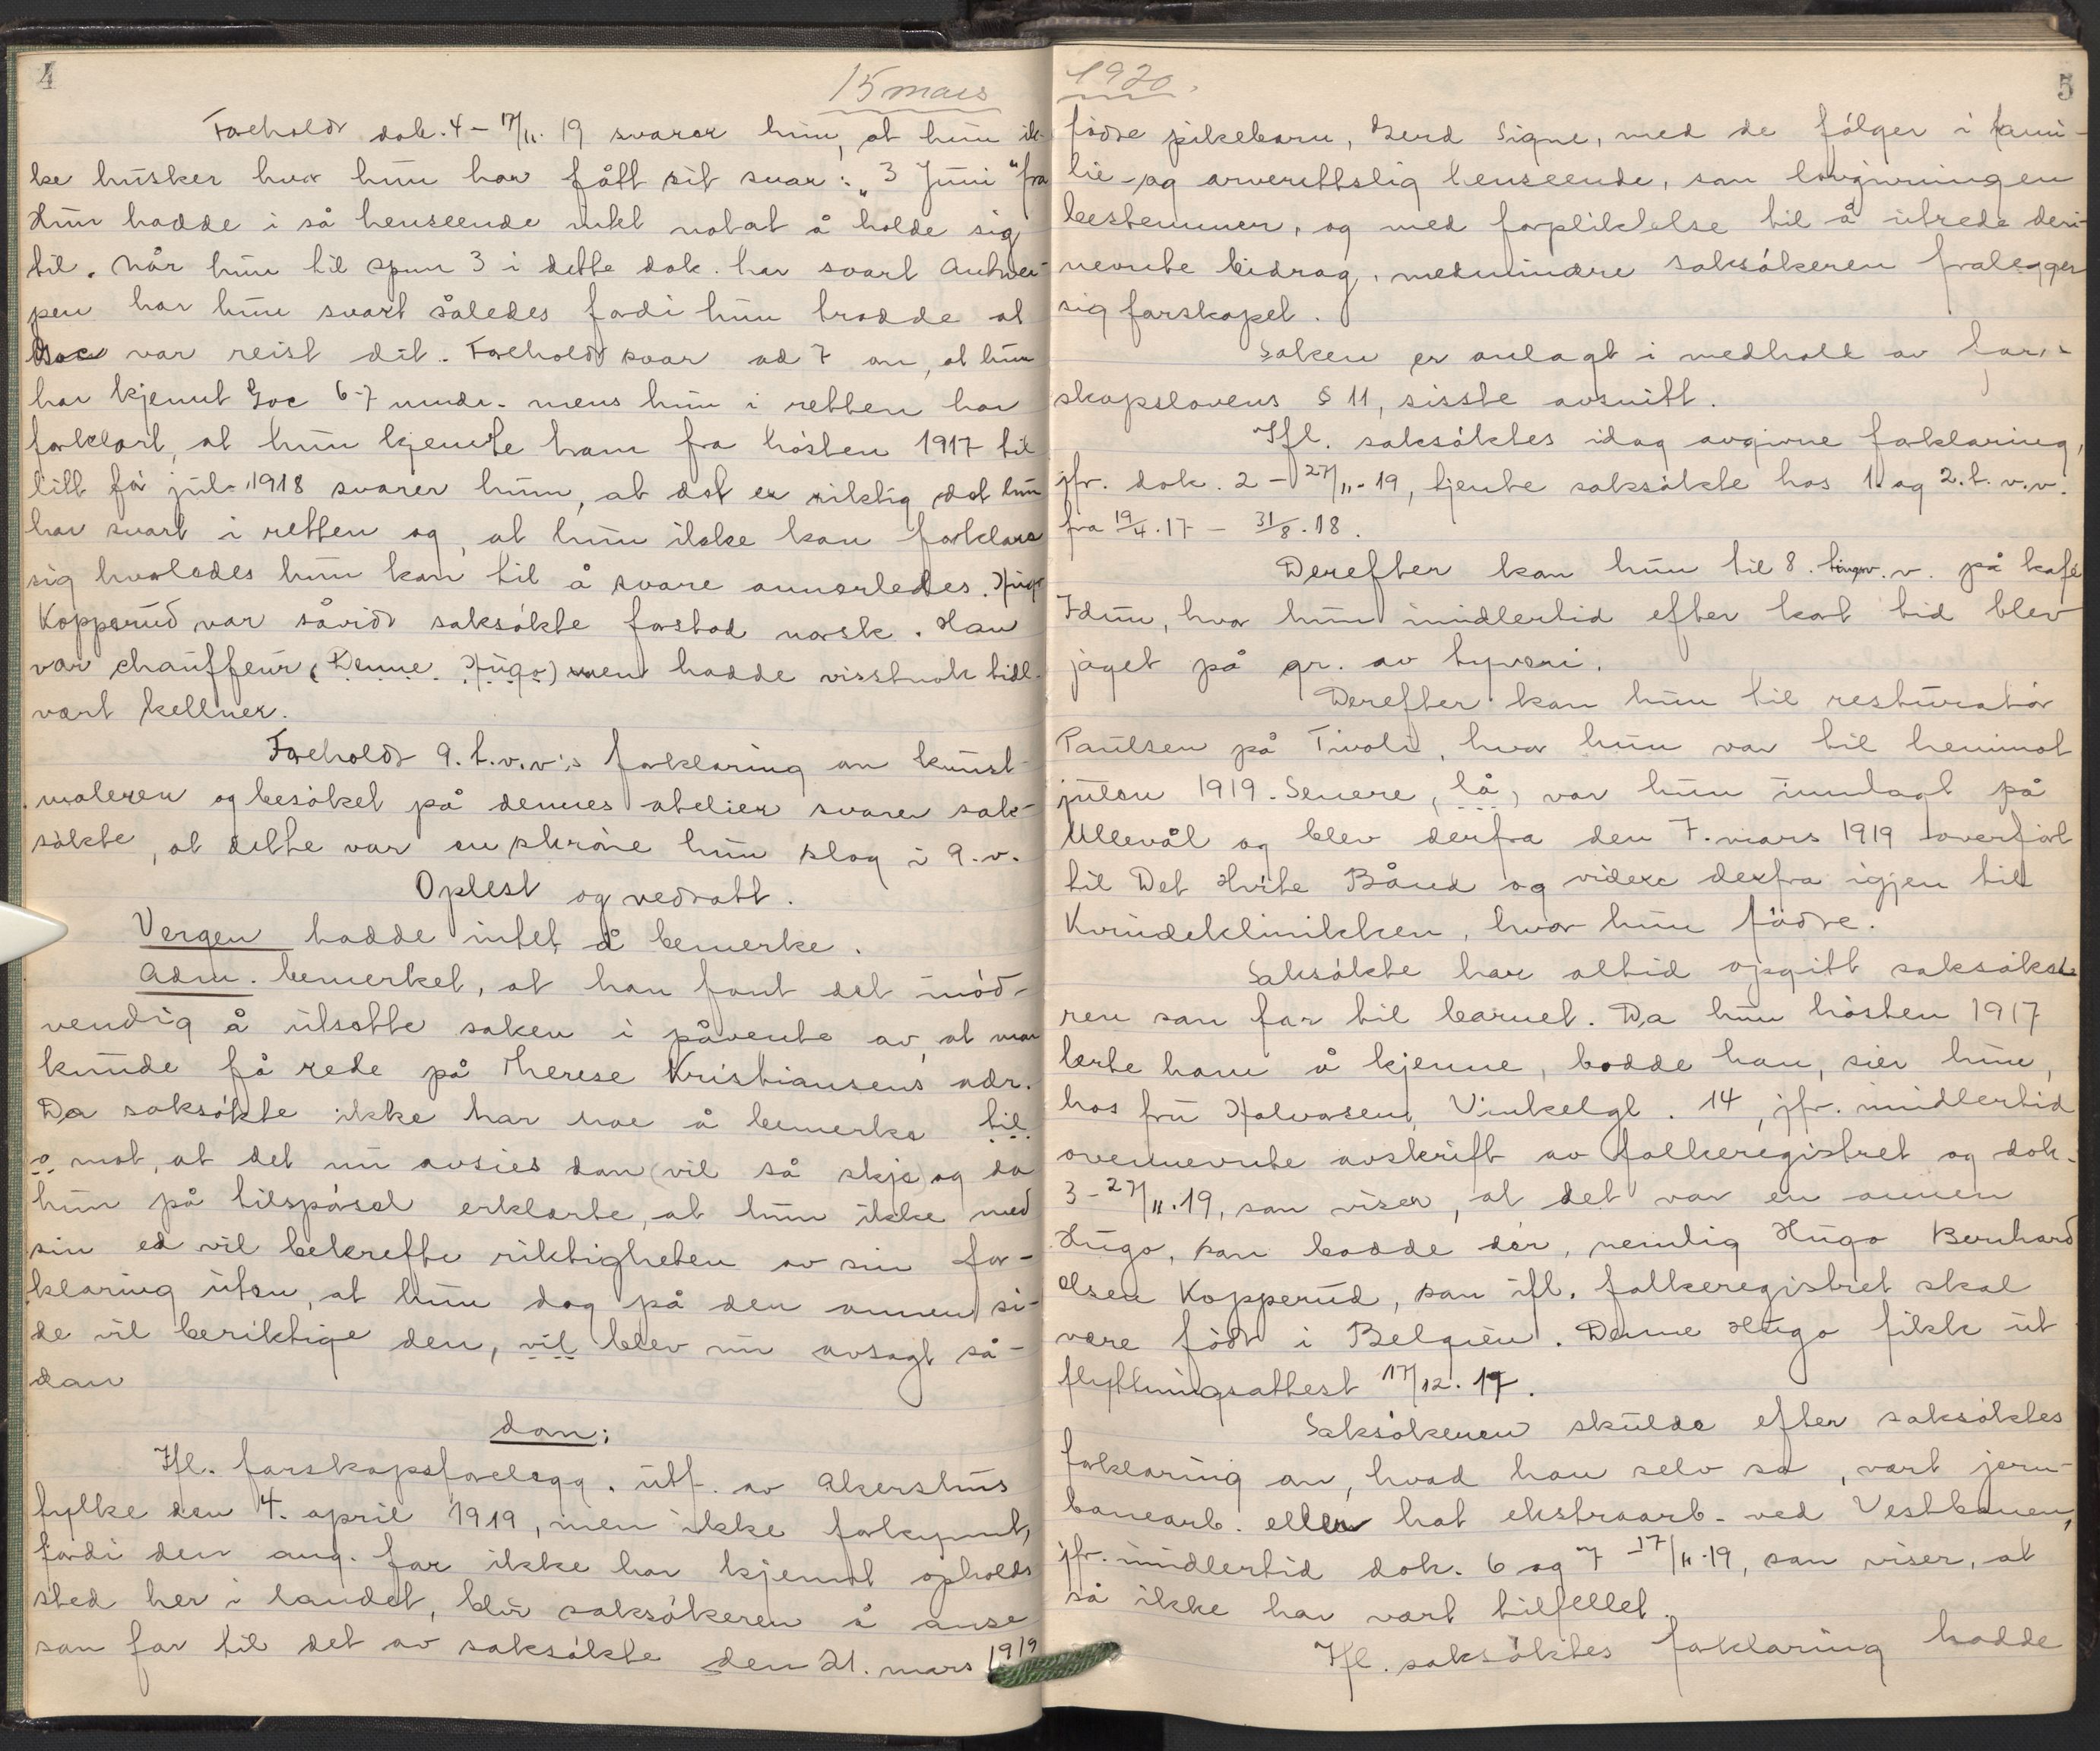 4
15 mars
Forholdt dok. 4 - 17/11. 19 svarer hun, at hun ik-
ke husker hvor hun har fått sit svar: "3 Juni" fra
Hun hadde i så henseende intet notat å holde sig
til. Når hun til spm 3 i dette dok. har svart Antwer-
pen har hun svart således fordi hun trodde at
var reist dit. Forholdt svar ad 7 om, at hun
har kjennt 6-7 mndr. mens hun i retten har
forklart, at hun kjendte ham fra høsten 1917 til
litt før jul 1918 svarer hun, at det er riktig det hun
har svart i retten og, at hun ikke kan forklare
sig hvorledes hun kan til å svare annerledes. Hugo
Kopperud var såvidt saksøkte forstod norsk. Han
var chauffeur (Denne Hugo) men hadde visstnok tidl.
vært kellner.
Forholdt 9. t.v.v's forklaring om kunst-
maleren og besøket på dennes atelier svarer sak-
søkte, at dette var en skrøne hun slog i 9. v.
Oplest og vedtatt.
Vergen hadde intet å bemerke.
Adm. bemerket, at han fant det unød-
vendig å utsette saken i påvente av, at man
kunde få rede på Therese Kristiansens adr.
Da saksøkte ikke har noe å bemerke til
o mot, at det nu avsies dom (vil så skje) og da
hun på tilspørsel erklærte, at hun ikke med
sin ed vil bekrefte riktigheten av sin for-
klaring uten, at hun dog på den annen si-
de vil beriktige den, vil blev nu avsagt så-
dan
dom:
Ifl. farskapsforelegg, utf. av Akershus
fylke den 4. april 1919, men ikke forkynnt,
fordi den ang. far ikke har kjennt opholds
sted her i landet, blir saksøkeren å anse
som far til det av saksøkte den 21. mars 1919
1920.
5
fødte pikebarn, Gerd Signe, med de følger i fami-
lie- og arverettslig henseende, som lovgivningen
bestemmer, og med forpliktelse til å utrede den-
nevnte bidrag, medmindre saksøkeren fralegger
sig farskapet.
Saken er anlagt i medhold av far-
skapslovens § 11, sisste avsnitt.
Ifl. saksøktes idag avgivne forklaring,
jfr. dok. 2 - 27/11-19, tjente saksøkte hos 1. og 2. t. v.v.
fra 19/4.17 - 31/8.18.
Derefter kom hun til 8. tingv. v. på kafé
Idun, hvor hun imidlertid efter kort tid blev
jaget på gr. av tyveri.
Derefter kom hun til restauratør
Paulsen på Tivoli, hvor hun var til henimot
julen 1919. Senere, lå, var hun innlagt på
Ullevål og blev derfra den 7. mars 1919 overført
til Det Hvite Bånd og videre derfra igjen til
Kvindeklinikken, hvor hun fødte.
Saksøkte har altid opgitt saksøke
ren som far til barnet. Da hun høsten 1917
lærte ham å kjenne, bodde han, sier hun,
hos fru Halvorsen, Vinkelgt. 14, jfr. imidlertid
ovennevnte avskrift av folkeregistret og dok.
3 - 27/11.19, som viser, at det var en annen
Hugo, som bodde der, nemlig Hugo Bernhard
Olsen Kopperud, som ifl. folkeregistret skal
være født i Belgien. Denne Hugo fikk ut
flyttningsattest 17/12. 17.
Saksøkeren skulde efter saksøktes
forklaring om, hvad han selv sa, vært jern-
banearb. eller hat ekstraarb. ved Vestbanen,
jfr. imidlertid dok. 6 og 7 - 17/11-19, som viser, at
så ikke har vært tilfellet.
Ifl. saksøktes forklaring hadde